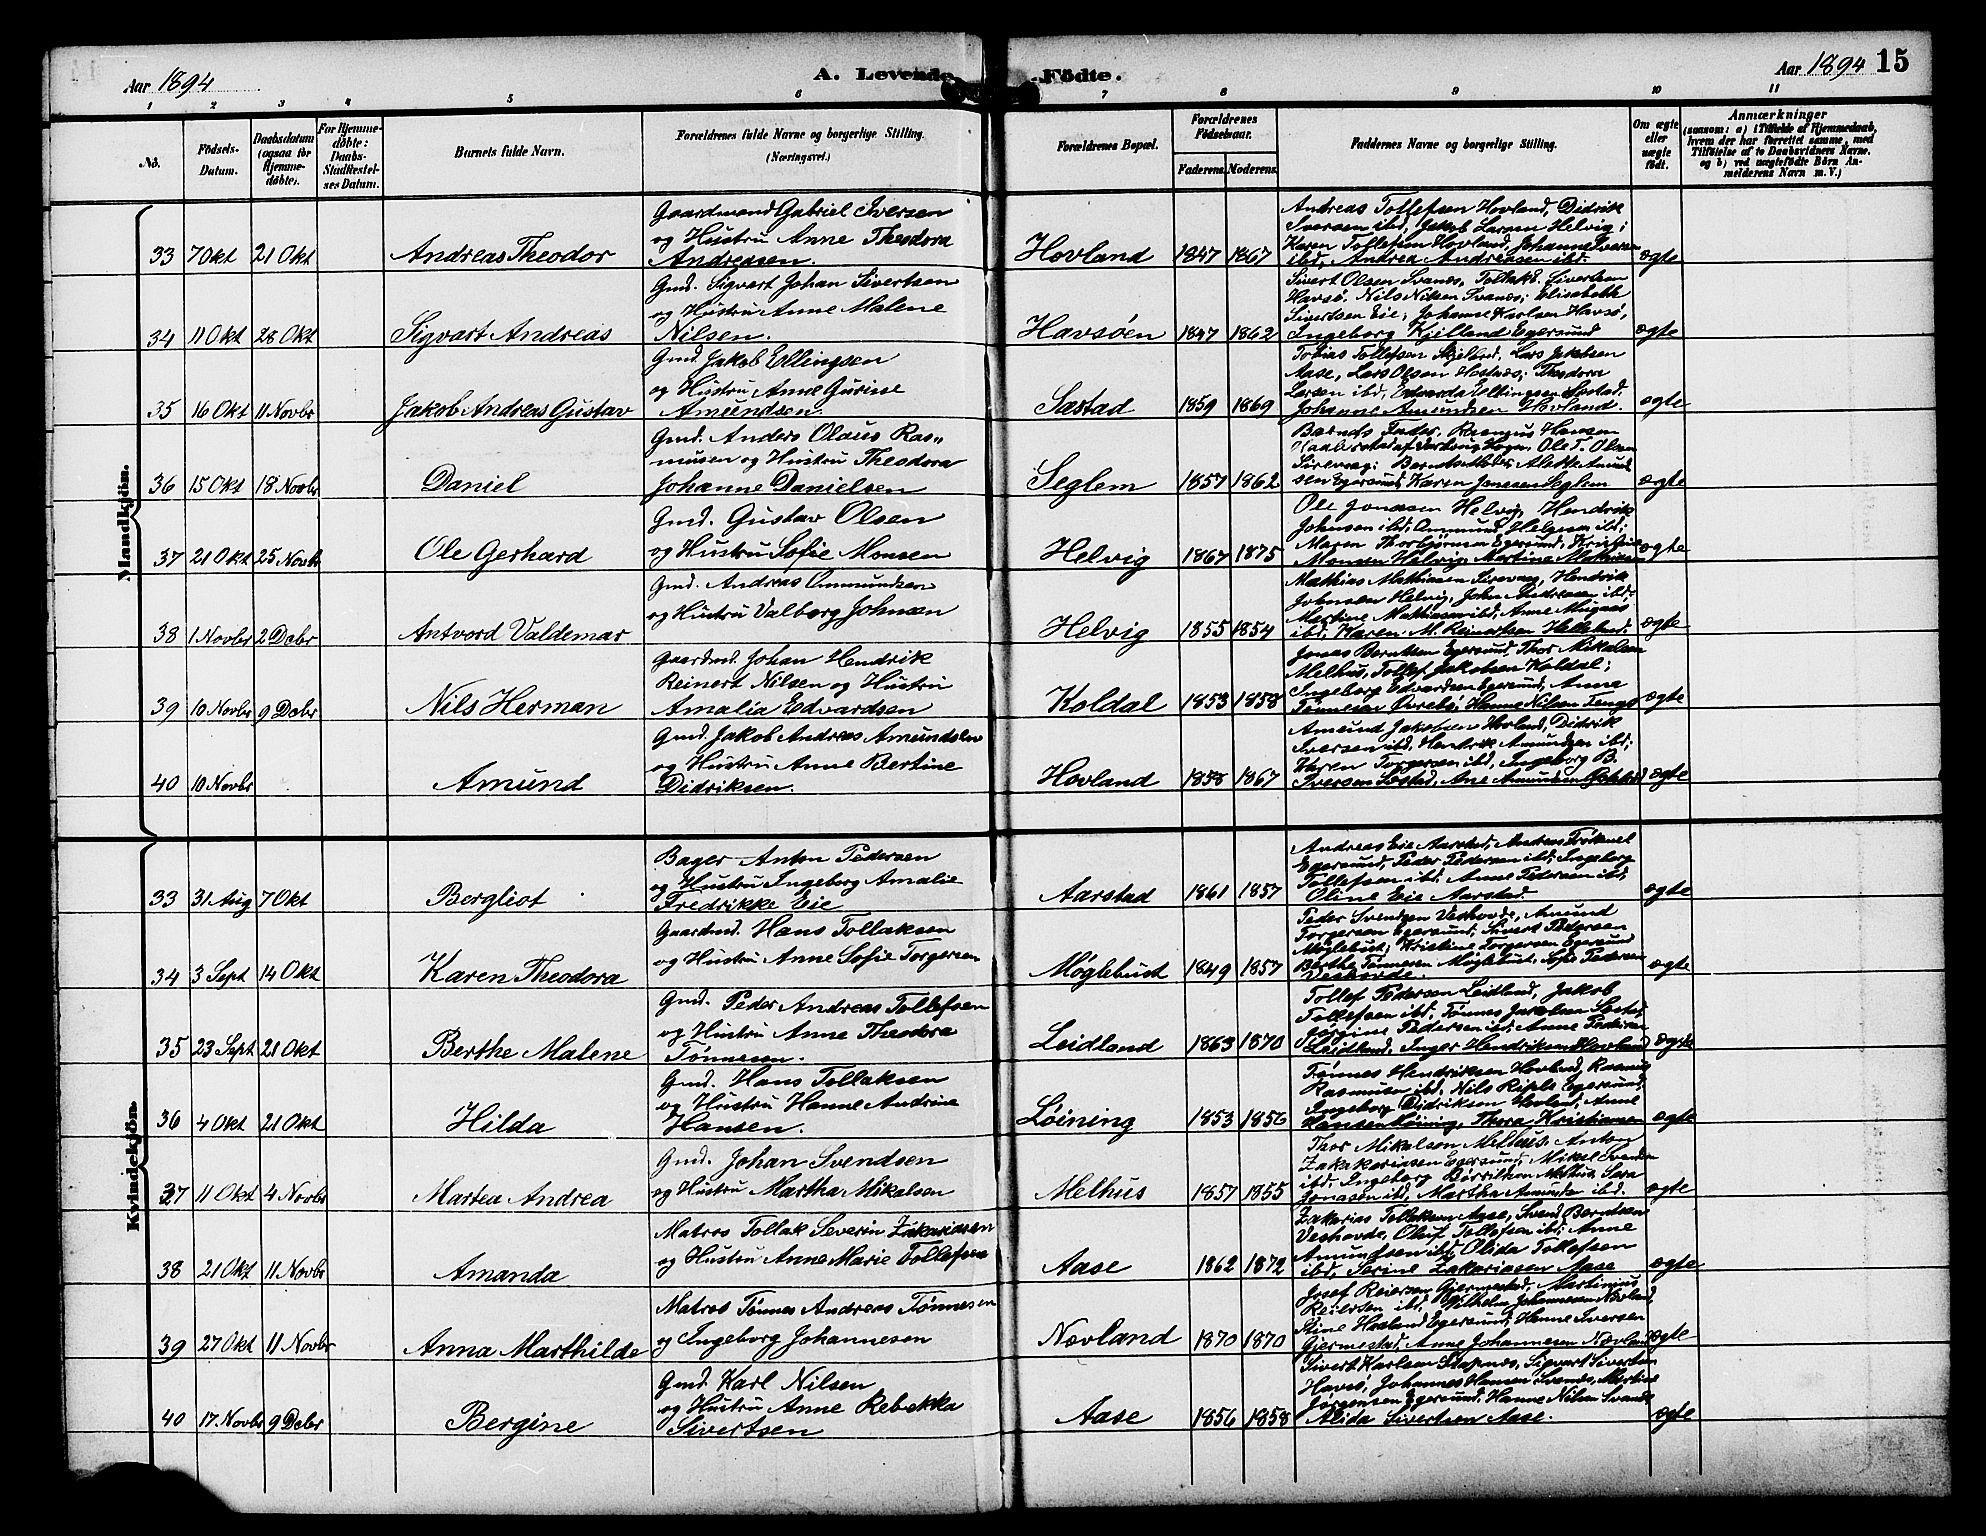 Aar 1894
A. Levende Födte.
Aar 1894 15
1 2 3 4 5 6 7 8 8 9 10 11
No.
Födsels-Datum.
Daabsdatum (ogsaa for Hjemmedöbte).
For Hjemmedöbte: Daabs-Stadfæstelses Datum.
Barnets fulde Navn.
Forældrenes fulde Navne og borgerlige Stilling. (Næringsvei.)
Forældrenes Bopæl.
Forældrenes Födselsaar.
Faderens. Moderens.
Faddernes Navne og borgerlige Stilling.
Om ægte eller uægte födt.
Anmærkninger
(saasom: a) i Tilfælde af Hjemmedaab, hvem der har forrettet samme, med Tilföielse af to Daabsvidners Navne, og b) ved uægtefödte Börn Anmelderens Navn m. V.)
Mandkjön.
33 7 Okt 21 Okt Andreas Theodor
Gaardmand Gabriel Iversen
og Hustru Anne Theodora
Andreasen.
Hovland 1847 1867
Andreas Tollefsen Hovland, Didrik
Iversen ibd, Jakob Larsen Helvig;
Karen Tollefsen Hovland, Johanne Iversen
ibd, Andrea Andreasen ibd.
ægte
34 11 Okt 28 Okt Sigvart Andreas
Gmd. Sigvart Johan Sivertsen
og Hustru Anne Malene
Nilsen.
Havsöen 1847 1862
Sivert Olsen Svanes, Tollak B. Sivertsen
Havsö, Nils Nilsen Svanes; Elisabeth
Sivertsen Eie, Johanne Karlsen Havsö,
Ingeborg Kjelland Egersund
ægte
35 16 Okt 11 Novbr Jakob Andreas Gustav
Gmd. Jakob Ellingsen
og Hustru Anne Gurine
Amundsen.
Sæstad 1859 1869
Tobias Tollefsen Skjelbred, Lars Jakobsen
Aase, Lars Olsen Hostnes; Theodora
Larsen ibd, Edvarda Ellingsen Sæstad,
Johanne Amundsen Hovland.
ægte
36 15 Okt 18 Novbr Daniel
Gmd. Anders Olaus Ras„
musen og Hustru Theodora
Johanne Danielsen
Seglem 1857 1862
Barnets Fader, Rasmus Hansen
Ole T. Olsen
Sirevaag; Barnets Moder, Alette Amund
sen Egersund, Karen Jensen Seglem
ægte
37 21 Okt 25 Novbr Ole Gerhard
Gmd. Gustav Olsen
og Hustru Sofie Monsen
Helvig 1867 1875
Ole Jonassen Helvig, Hendrik
Johnsen ibd, Ommund Helgesen ibd;
Maren Thorbjörnsen Egersund, Kristine
Monsen Helvig, Martine Mathiasen
ægte
38 1 Novbr 2 Decbr Antvord Valdemar
Gmd. Andreas Ommundsen
og Hustru Valborg Johnsen
Helvig 1855 1854
Mathias Mathiasen Sirevaag, Hendrik
Johnsen Helvig, John Andreasen ibd;
Martine Mathiasen ibd, Anne
ibd, Karen M. Reinertsen Helleland.
ægte
39 10 Novbr 9 Decbr Nils Herman
Gaardmd. Johan Hendrik
Reinert Nilsen og Hustru
Amalia Edvardsen
Koldal 1853 1858
Jonas Berntsen Egersund, Thor Mikalsen
Melhus, Tollef Jakobsen Koldal;
Ingeborg Edvardsen Egersund, Anne
Tönnesen Övrebö, Hanne Nilsen Tengs
ægte
40 10 Novbr Amund
Gmd. Jakob Andreas Amundsen
og Hustru Anne Bertine
Didriksen.
Hovland 1858 1867
Amund Jakobsen Hovland, Didrik
Iversen ibd, Hendrik Amundsen ibd;
Karen Torgersen ibd, Ingeborg B.
Iversen Sæstad, Ane Amundsen
ægte
Kvindekjön.
33 31 Aug 7 Okt Bergliot
Bager Anton Pedersen
og Hustru Ingeborg Amalie
Fredrikke Eie
Aarstad 1861 1857
Andreas Eie Aarstad, Andreas Frökenel
Egersund, Peder Pedersen ibd, Ingeborg
Tollefsen ibd, Anne Pedersen ibd,
Oline Eie Aarstad.
ægte
34 3 Sept 14 Okt Karen Theodora
Gaardmd. Hans Tollaksen
og Hustru Anne Sofie Torgersen
Möglebust 1849 1857
Peder Svendsen Veshovde, Amund
Torgersen Egersund, Sivert Pedersen
Möglebust, Kristine Torgersen Egersund
Berthe Tönnesen Möglebust, Sofie Pedersen
Veshovde.
ægte
35 23 Sept 21 Okt Berthe Malene
Gmd. Peder Andreas Tollefsen
og Hustru Anne Theodora
Tönnesen.
Leidland 1863 1870
Tollef Pedersen Leidland, Jakob
Tollefsen ibd, Tönnes Jakobsen Sæstad,
Jörgine Pedersen ibd, Anne Pedersen
Leidland, Inger Hendriksen Hovland
ægte
36 4 Okt 21 Okt Hilda
Gmd. Hans Tollaksen
og Hustru Hanne Andrine
Hansen.
Löining 1853 1856
Tönnes Hendriksen Hovland, Rasmus
Rasmusen ibd, Nils Egersund,
Ingeborg Didriksen Hovland, Anne
Hansen Löining, Thora Kristiansen
ægte
37 11 Okt 4 Novbr Martea Andrea
Gmd. Johan Svendsen
og Hustru Martha Mikalsen
Melhus 1857 1855
Thor Mikalsen Melhus, Anton
Zakariasen Egersund, Mikal Svendsen
ibd, Ingeborg Börritsen Melhus, Sara
Jonasen ibd, Martha Amunds ibd.
ægte
38 21 Okt 11 Novbr Amanda
Matros Tollak Severin Zakariasen
og Hustru Anne Marie Tollefsen
Aase 1862 1872
Zakarias Tollaksen Aase, Svend Berntsen
Veshovde, Oluf Tollefsen ibd; Anne
Amundsen ibd, Olida Tollefsen
ibd, Serine Zakariasen Aase
ægte
39 27 Okt 11 Novbr Anna Marthilde
Matros Tönnes Andreas Tönnesen
og Ingeborg Johannesen
Nævland 1870 1870
Josef Reiersen Gjermestad, Martinius
Reiersen ibd, Vilhelm Johannesen Nævland,
Stine Haaland Egersund, Hanne Iversen
Gjermestad, Anne Johannesen Nævland
ægte
40 17. Novbr 9 Decbr Bergine
Gmd. Karl Nilsen
og Hustru Anne Rebekka
Sivertsen
Aase 1856 1858
Sivert Karlsen Stapnes, Sigvart Sivertsen
Havsö, Johannes Hansen Svanes, Martine
Jörgensen Egersund, Hanne Nilsen Svanes
Alida Sivertsen Aase.
ægte